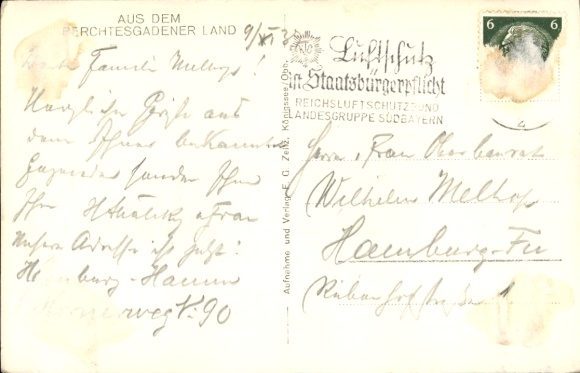 AUS DEM
BERCHTESGADENER LAND
Familie Melhop!
Herzliche Grüße aus
dem Ihnen bekannten
senden Ihnen
Ihr u Frau
Unsere Adresse ist jetzt:
Hamburg-Hamm
90
Aufnahme und Verlag E. G. Zeitz, Königssee/Obb.
Luftschutz
ist Staatsbürgerpflicht
REICHSLUFTSCHUTZBUND
LANDESGRUPPE SÜDBAYERN
6 6
Herrn u Frau Oberbaurat
Wilhelm Melhop
Hamburg-Fu